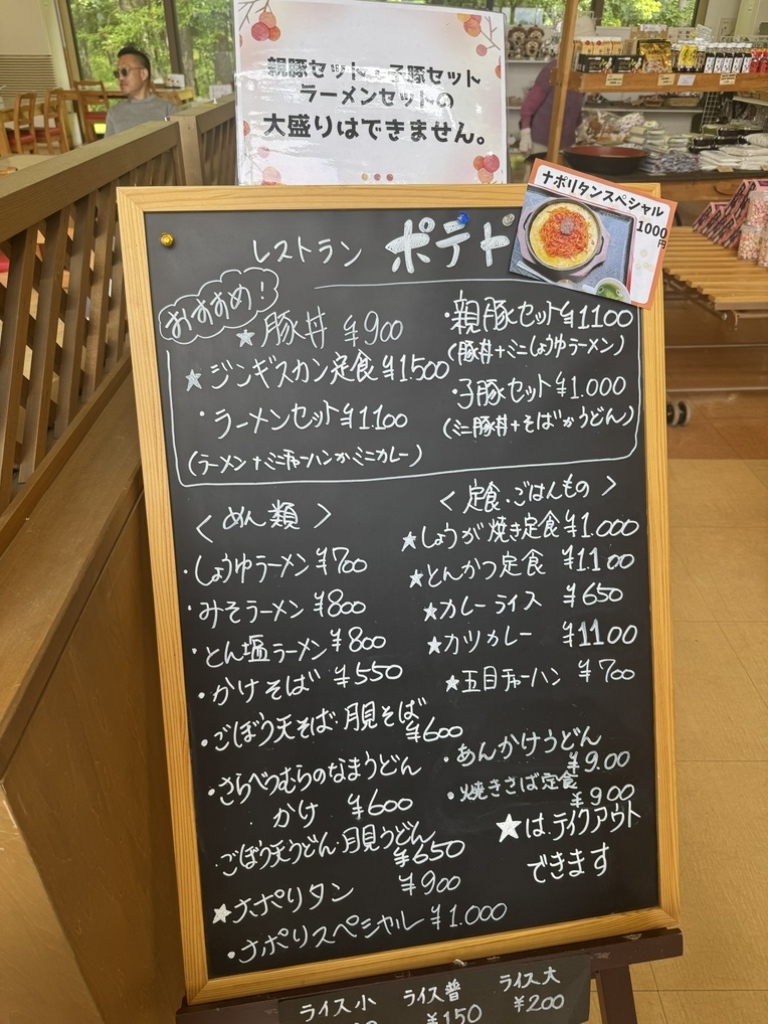 親豚セット 子豚セット
ラーメンセットの
大盛りはできません。
ナポリタンスペシャル
1000
円
レストラン ポテト
おすすめ!
★豚丼 ¥900
★ジンギスカン定食 ¥1.500
・ラーメンセット ¥1.100
(ラーメン+ミニチャーハンかミニカレー)
・親豚セット ¥1100
(豚丼+ミニしょうゆラーメン)
・子豚セット ¥1.000
(ミニ豚丼+そばかうどん)
<めん類>
・しょうゆラーメン ¥700
・みそラーメン ¥800
・とん塩ラーメン ¥800
・かけそば ¥550
・ごぼう天そば・月見そば
¥600
・さらべつむらのなまうどん
かけ ¥600
・ごぼう天うどん・月見うどん
¥650
★ナポリタン ¥900
・ナポリスペシャル ¥1.000
<定食・ごはんもの>
★しょうが焼き定食 ¥1.000
★とんかつ定食 ¥1.100
★カレーライス ¥650
★カツカレー ¥1100
★五目チャーハン ¥700
・あんかけうどん
¥9.00
・焼きさば定食
¥900
★は、テイクアウト
できます
ライス小 ライス普 ライス大
¥150 ¥200